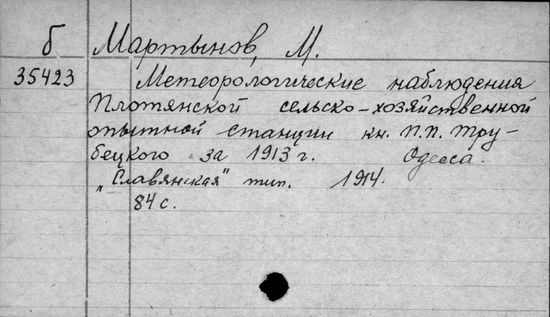 б Мартынов, М.
35423 Метеорологические наблюдения
Плотянской сельско-хозяйственной
опытной станции кн. П.П. Тру-
бецкого за 1913 г. Одесса.
„Славянская" тип. 1914.
84 с.